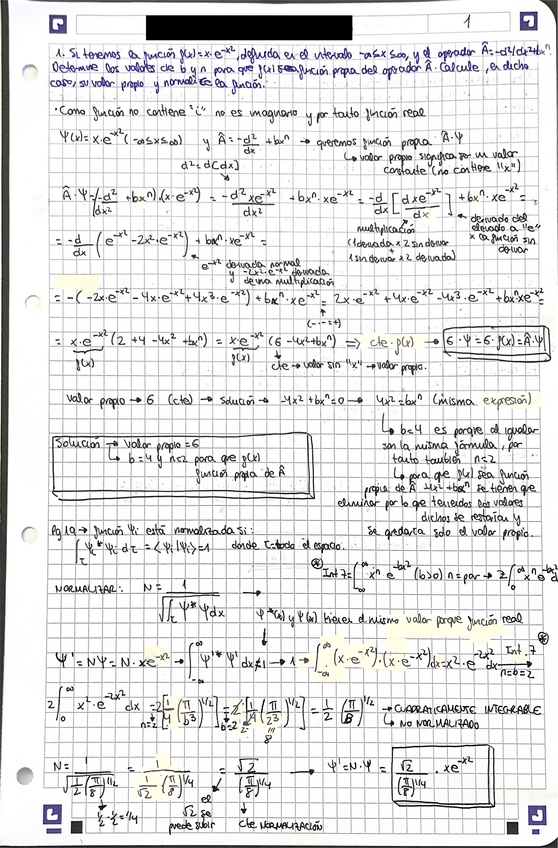 1
1. Si tenemos la función f(x)=x·e^-x², definida en el intervalo -∞≤x≤∞, y el operador Â=-d²/dx²+bxⁿ.
Determine los valores de b y n para que f(x) sea función propia del operador Â. Calcule, en dicho
caso, su valor propio y normalice la función.
·Como función no contiene "i" no es imaginario y por tanto función real
Ψ(x)=x·e^-x² (-∞≤x≤∞) y Â=-d²/dx +bxⁿ → queremos función propia Â·Ψ
↳ valor propio significa ser un valor
constante (no contiene "x")
d²=d(dx)
Â·Ψ=(-d²/dx² +bxⁿ)·(x·e^-x²) = -d² xe^-x²/dx² + bxⁿ·xe^-x² = -d/dx [d xe^-x²/dx] + bxⁿ·xe^-x² =
multiplicación
(1 derivada x 2 sin derivar
+
1 sin derivar x 2 derivada)
derivado del
elevado a "e"
x la función sin
derivar
= -d/dx (e^-x² - 2x²·e^-x²) + bxⁿ·xe^-x² =
e^-x² derivada normal
y -2x²·e^-x² derivada
de una multiplicación
= -(-2x·e^-x² - 4x·e^-x² + 4x³·e^-x²) + bxⁿ·xe^-x² = 2x·e^-x² + 4x·e^-x² - 4x³·e^-x² + bxⁿxe^-x² =
(-·-=+)
= x·e^-x² (2+4-4x²+bxⁿ) = x·e^-x² (6-4x²+bxⁿ) ⇒ cte·f(x) → 6·Ψ=6·f(x)=Â·Ψ
f(x) f(x) cte → valor sin "x" → valor propio.
valor propio → 6 (cte) → solución → -4x²+bxⁿ=0 → 4x²=bxⁿ (misma expresión)
↳ b=4 es porque al igualar
son la misma fórmula, por
tanto también n=2
↳ para que f(x) sea función
propia de Â -4x²+bxⁿ se tienen que
eliminar por lo que teniendo los valores
dichos se restarían y
se quedaría solo el valor propio.
Solución → valor propio=6
↳ b=4 y n=2 para que f(x)
función propia de Â
Pg 19 → función Ψi está normalizada si:
∫τ Ψi* Ψi dτ = ⟨Ψi|Ψi⟩=1 donde τ=todo el espacio.
⊛ Int 7=∫-∞^∞ xⁿ e^-bx² (b>0) n=par → 2∫0^∞ xⁿ e^-bx² d
NORMALIZAR: N= 1/√(∫τ Ψ*Ψdx)
Ψ*(x) y Ψ(x) tienen el mismo valor porque función real
Ψ'=NΨ=N·xe^-x² → ∫-∞^∞ Ψ'*Ψ' dx≠1 → 1 → ∫-∞^∞ (x·e^-x²)·(x·e^-x²)dx=x²·e^-2x² dx ⊛ Int. 7 → n=b=2
2∫0^∞ x²·e^-2x² dx =(n=2) 2[1/4 (π/b³)^1/2] =(b=2) 2·[1/4 (π/2³)^1/2] = 1/2 (π/8)^1/2 → CUADRATICAMENTE INTEGRABLE
8
↳ NO NORMALIZADO
N= 1/√(1/2 (π/8)^1/2) = 1/(1/√2 (π/8)^1/4) = √2/(π/8)^1/4 → Ψ'=N·Ψ = √2/(π/8)^1/4 · xe^-x²
½·½=¼
el
√2 se
puede subir
cte NORMALIZACIÓN